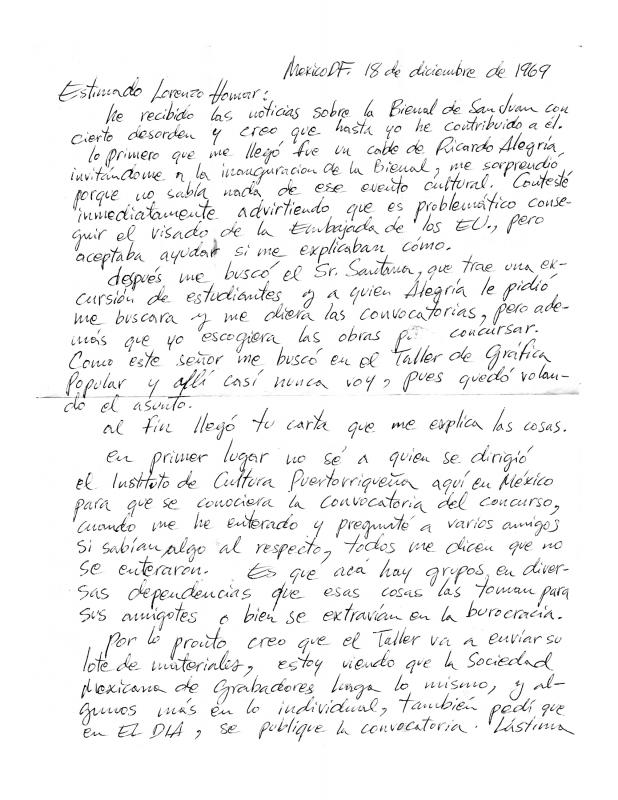 Mexico DF. 18 de diciembre de 1969
Estimado Lorenzo Homar:
he recibido las noticias sobre la Bienal de San Juan con
cierto desorden y creo que hasta yo he contribuido a él.
lo primero que me llegó fue un cable de Ricardo Alegría
invitándome a la inauguracion de la Bienal, me sorprendió
porque no sabía nada de ese evento cultural. Contesté
inmediatamente advirtiendo que es problemático conse-
guir el visado de la Embajada de los EU., pero
aceptaba ayudar si me explicaban cómo.
después me buscó el Sr. Santana, que trae una ex-
cursión de estudiantes y a quien Alegría le pidió
me buscara y me diera las convocatorias, pero ade-
más que yo escogiera las obras concursar.
Como este señor me buscó en el Taller de Gráfica
Popular y allí casi nunca voy, pues quedó volan-
do el asunto.
al fin llegó tu carta que me explica las cosas.
en primer lugar no sé a quien se dirigió
el Instituto de Cultura Puertorriqueña aquí en México
para que se conociera la convocatoria del concurso,
cuando me he enterado y pregunté a varios amigos
si sabían algo al respecto, todos me dicen que no
se enteraron. Es que acá hay grupos en diver-
sas dependencias que esas cosas las toman para
sus amigotes o bien se extravían en la burocracia.
Por lo pronto creo que el Taller va a enviar su
lote de materiales, estoy viendo que la Sociedad
Mexicana de Grabadores haga lo mismo, y al-
gunos más en lo individual, también pedí que
en EL DIA, se publique la convocatoria. Lástima